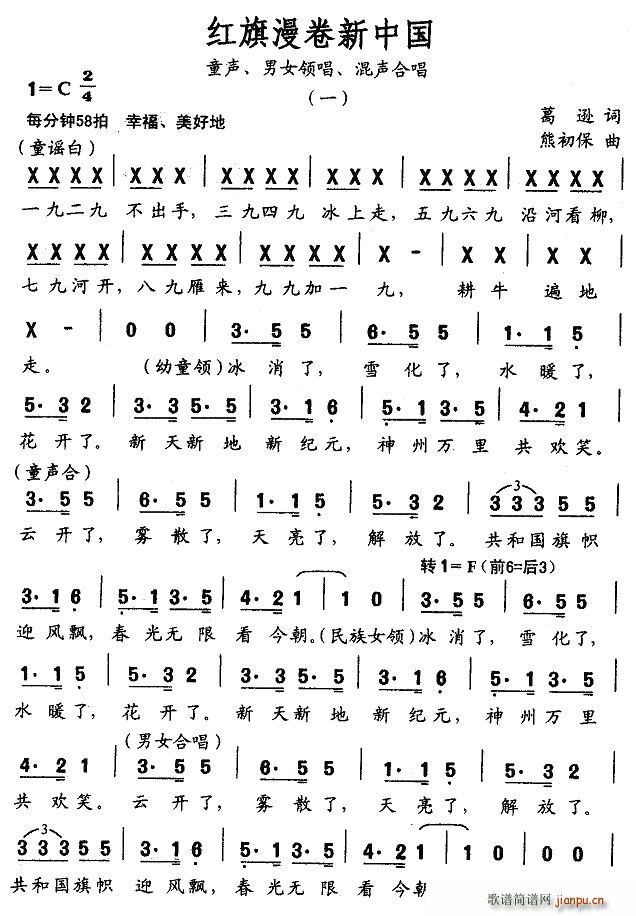 红旗漫卷新中国
童声、男女领唱、混声合唱
(一)
1=C 2/4
每分钟58拍 幸福、美好地
葛逊 词
熊初保 曲
(童谣白)
X X X X X X X | X X X X X X X | X X X X X X X |
一九二九 不出手, 三九四九 冰上走, 五九六九 沿河看柳,
X X X X | X X X X | X X X X | X - | X X X X |
七九河开, 八九雁来, 九九加一 九, 耕牛 遍地
X - | 0 0 | 3· 5 5 | 6· 5 5 | 1· 1 5 |
走。 (幼童领)冰 消了, 雪 化了, 水 暖了,
5· 3 2 | 3· 3 5· 5 | 3· 1 6 | 5· 1 3· 5 | 4· 2 1 |
花 开了。 新 天新 地 新 纪元, 神 州万 里 共 欢笑。
(童声合)
3· 5 5 | 6· 5 5 | 1· 1 5 | 5· 3 2 | 3 3 3 5 5 |
云 开了, 雾 散了, 天 亮了, 解 放了。 共和国旗帜
转1=F(前6=后3)
3· 1 6 | 5· 1 3· 5 | 4· 2 1 | 1 0 | 3· 5 5 | 6· 5 5 |
迎 风飘, 春 光无 限 看 今朝。(民族女领)冰 消了, 雪 化了,
1· 1 5 | 5· 3 2 | 3· 3 5· 5 | 3· 1 6 | 5· 1 3· 5 |
水 暖了, 花 开了。 新 天新 地 新 纪元, 神 州万 里
(男女合唱)
4· 2 1 | 3· 5 5 | 6· 5 5 | 1· 1 5 | 5· 3 2 |
共 欢笑。 云 开了, 雾 散了, 天 亮了, 解 放了。
3 3 3 5 5 | 3· 1 6 | 5· 1 3· 5 | 4· 2 1 | 1 0 |
共和国旗帜 迎 风飘, 春 光无 限 看 今朝
歌谱简谱网
jianpu.cn